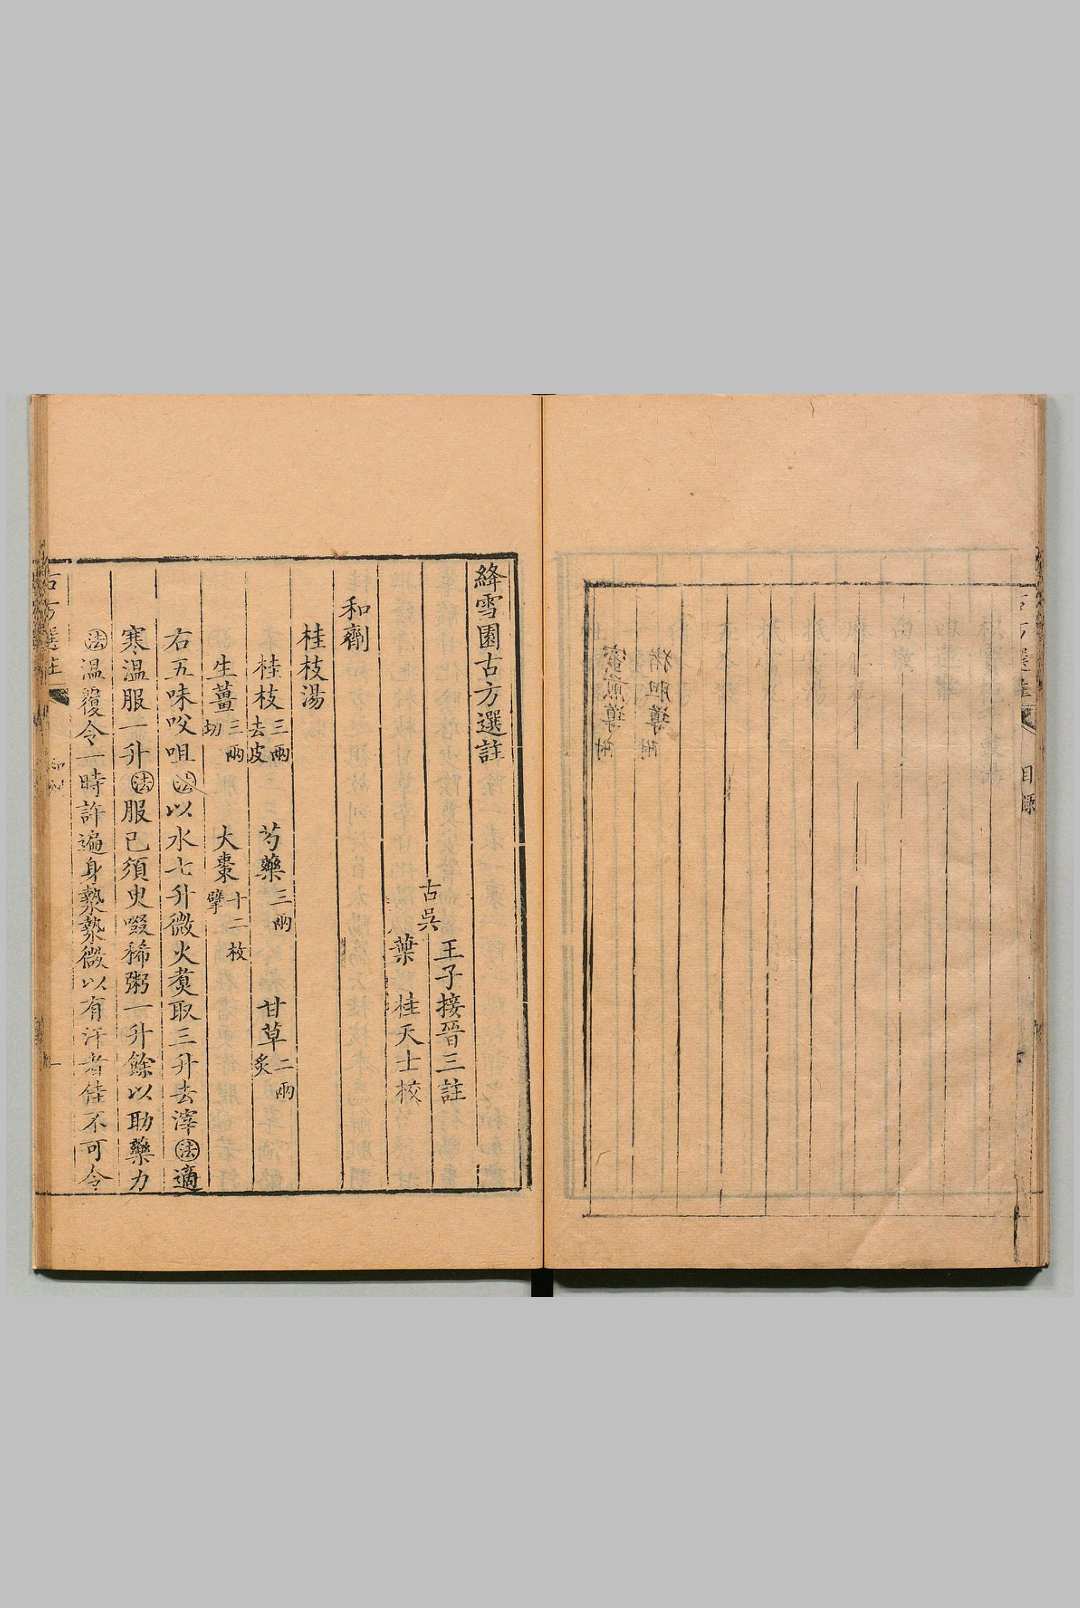 古方選註 目錄
猪胆導附
蜜煎導附
絳雪園古方選註
古吳
王子接晉三註
葉桂天士校
和劑
桂枝湯
桂枝三兩去皮 芍藥三兩 甘草二兩炙
生薑三兩切 大棗十二枚擘
右五味㕮咀㊟法以水七升微火煑取三升去滓法適
寒溫服一升法服已須臾啜稀粥一升餘以助藥力
法溫覆令一時許遍身漐漐微以有汗者佳不可令
古方選註 和劑 一